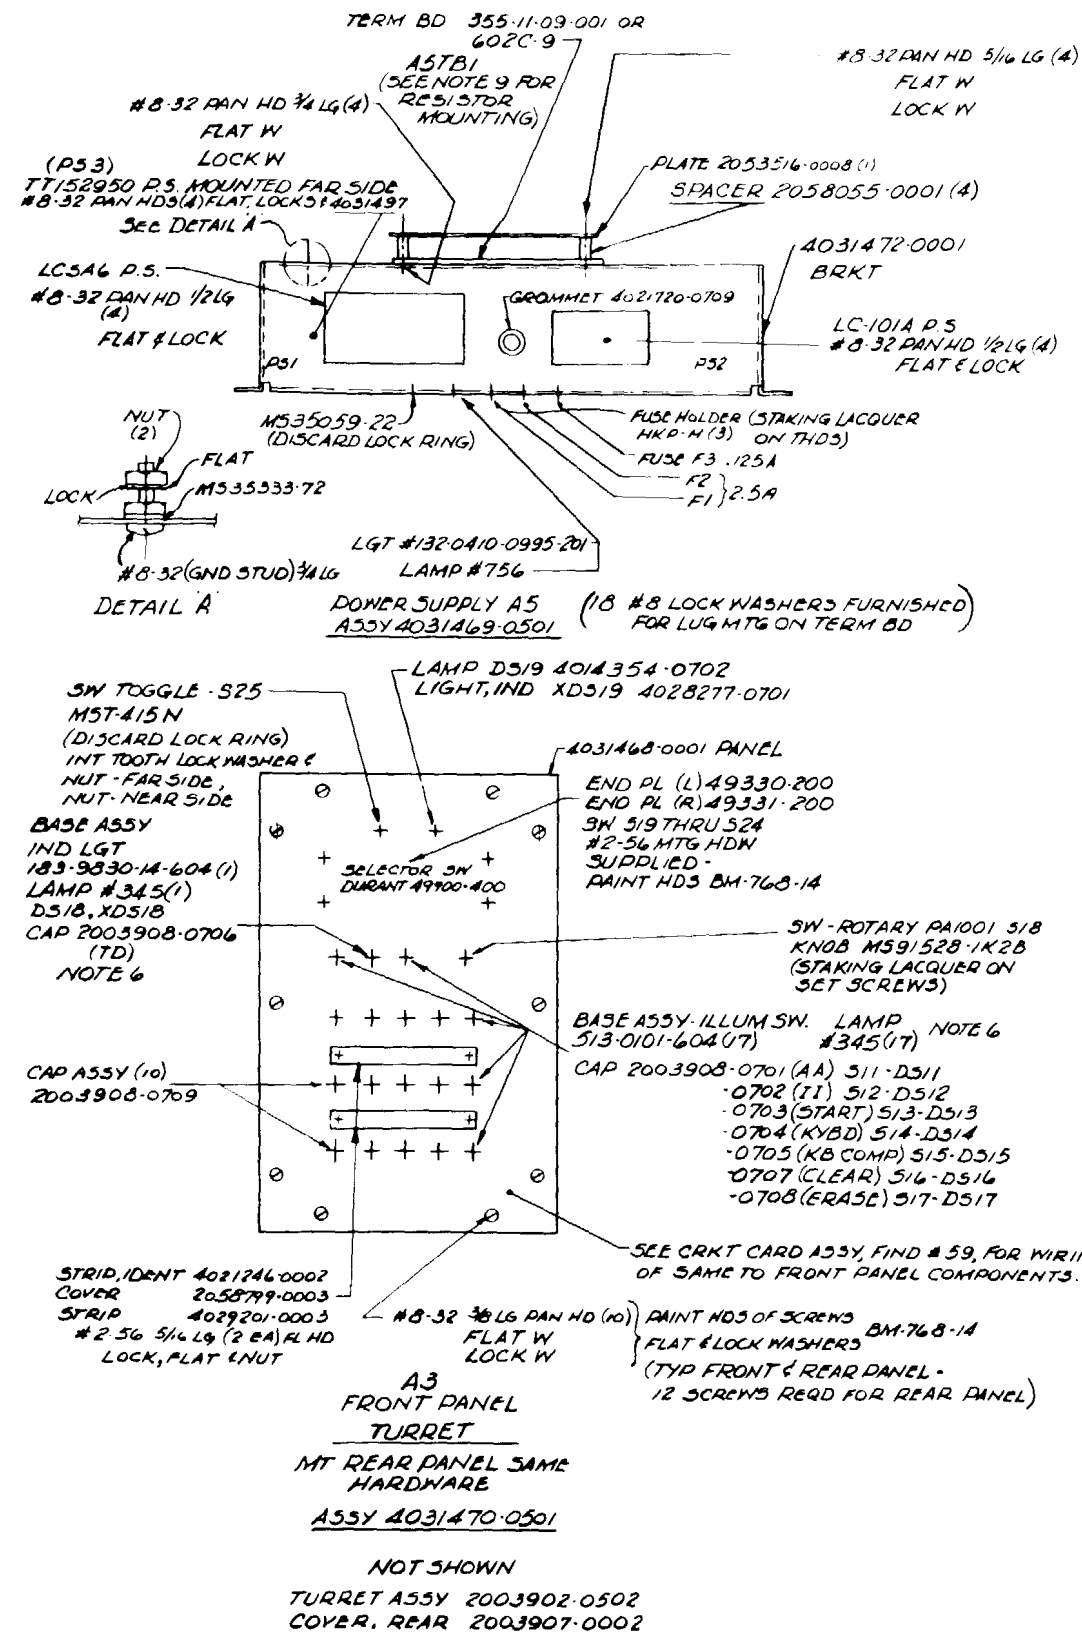 TERM BD 355-11-09-001 OR
602C-9
A5TB1
(SEE NOTE 9 FOR
RESISTOR
MOUNTING)
#8-32 PAN HD 5/16 LG (4)
FLAT W
LOCK W
#8-32 PAN HD 3/4 LG (4)
FLAT W
LOCK W
(PS3)
TT152950 P.S. MOUNTED FAR SIDE
#8-32 PAN HDS(4) FLAT, LOCKS & 4031497
SEE DETAIL A
PLATE 2053516-0008 (1)
SPACER 2058055-0001 (4)
4031472-0001
BRKT
LCSA6 P.S.
#8-32 PAN HD 1/2 LG
(4)
FLAT & LOCK
GROMMET 4021720-0709
LC-101A P.S
#8-32 PAN HD 1/2 LG (4)
FLAT & LOCK
PS1
PS2
MS35059-22
(DISCARD LOCK RING)
FUSE HOLDER (STAKING LACQUER
HKP-H (3) ON THDS)
FUSE F3 .125A
F2
F1 } 2.5A
NUT
(2)
FLAT
LOCK
MS35333-72
#8-32 (GND STUD) 3/4 LG
DETAIL A
LGT #132-0410-0995-201
LAMP #756
POWER SUPPLY A5
ASSY 4031469-0501
(18 #8 LOCK WASHERS FURNISHED)
FOR LUG MTG ON TERM BD
LAMP DS19 4014354-0702
LIGHT, IND XDS19 4028277-0701
SW TOGGLE - S25
MST-415N
(DISCARD LOCK RING)
INT TOOTH LOCKWASHER &
NUT - FAR SIDE,
NUT - NEAR SIDE
4031468-0001 PANEL
END PL (L) 49330-200
END PL (R) 49331-200
SW S19 THRU S24
#2-56 MTG HDW
SUPPLIED -
PAINT HDS BM-768-14
BASE ASSY
IND LGT
183-9830-14-604 (1)
LAMP #345 (1)
DS18, XDS18
CAP 2003908-0706
(TD)
NOTE 6
SELECTOR SW
DURANT 49900-400
SW - ROTARY PA1001 S18
KNOB MS91528-1K2B
(STAKING LACQUER ON
SET SCREWS)
BASE ASSY-ILLUM SW. LAMP NOTE 6
513-0101-604 (17) #345 (17)
CAP 2003908-0701 (AA) S11-DS11
-0702 (II) S12-DS12
-0703 (START) S13-DS13
-0704 (KYBD) S14-DS14
-0705 (KB COMP) S15-DS15
-0707 (CLEAR) S16-DS16
-0708 (ERASE) S17-DS17
CAP ASSY (10)
2003908-0709
SEE CRKT CARD ASSY, FIND #59, FOR
OF SAME TO FRONT PANEL COMPONENTS.
STRIP, IDENT 4021246-0002
COVER 2058799-0003
STRIP 4029201-0003
#2-56 5/16 LG (2 EA) FL HD
LOCK, FLAT & NUT
#8-32 3/8 LG PAN HD (10)
FLAT W
LOCK W
PAINT HDS OF SCREWS
FLAT & LOCK WASHERS BM-768-14
(TYP FRONT & REAR PANEL -
12 SCREWS REQD FOR REAR PANEL)
A3
FRONT PANEL
TURRET
MT REAR PANEL SAME
HARDWARE
ASSY 4031470-0501
NOT SHOWN
TURRET ASSY 2003902-0502
COVER, REAR 2003907-0002